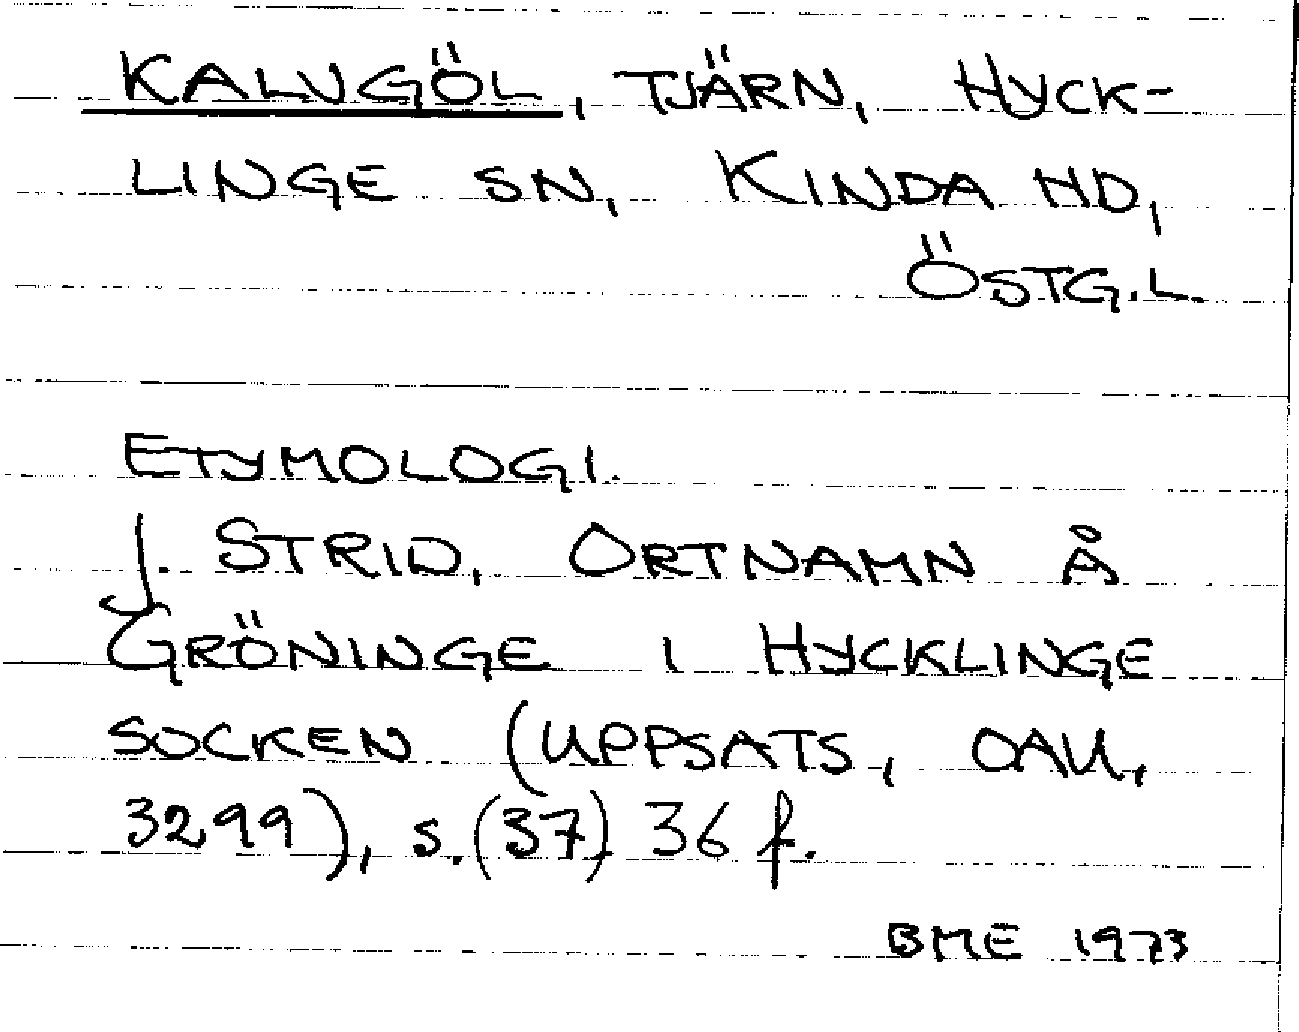 KALVGÖL, TJÄRN, HYCK-
LINGE SN, KINDA HD,
ÖSTG.L.
ETYMOLOGI.
J. STRID, ORTNAMN Å
GRÖNINGE I HYCKLINGE
SOCKEN (UPPSATS, OAU,
3299), s.(37) 36 f.
BME 1973